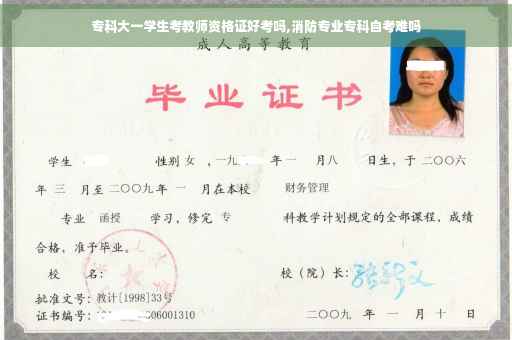 专科大一学生考教师资格证好考吗,消防专业专科自考难吗
成人高等教育
毕业证书
学生 性别 女 ,一九 年 一 月八 日生,于二〇〇六
年 三 月至二〇〇九年 一 月在本校 财务管理
专业 函授 学习,修完 专 科教学计划规定的全部课程,成绩
合格,准予毕业。
校 名: 校(院)长:
批准文号:教计[1998]33号
证书编号: 06001310 二〇〇九 年 一 月 十 日